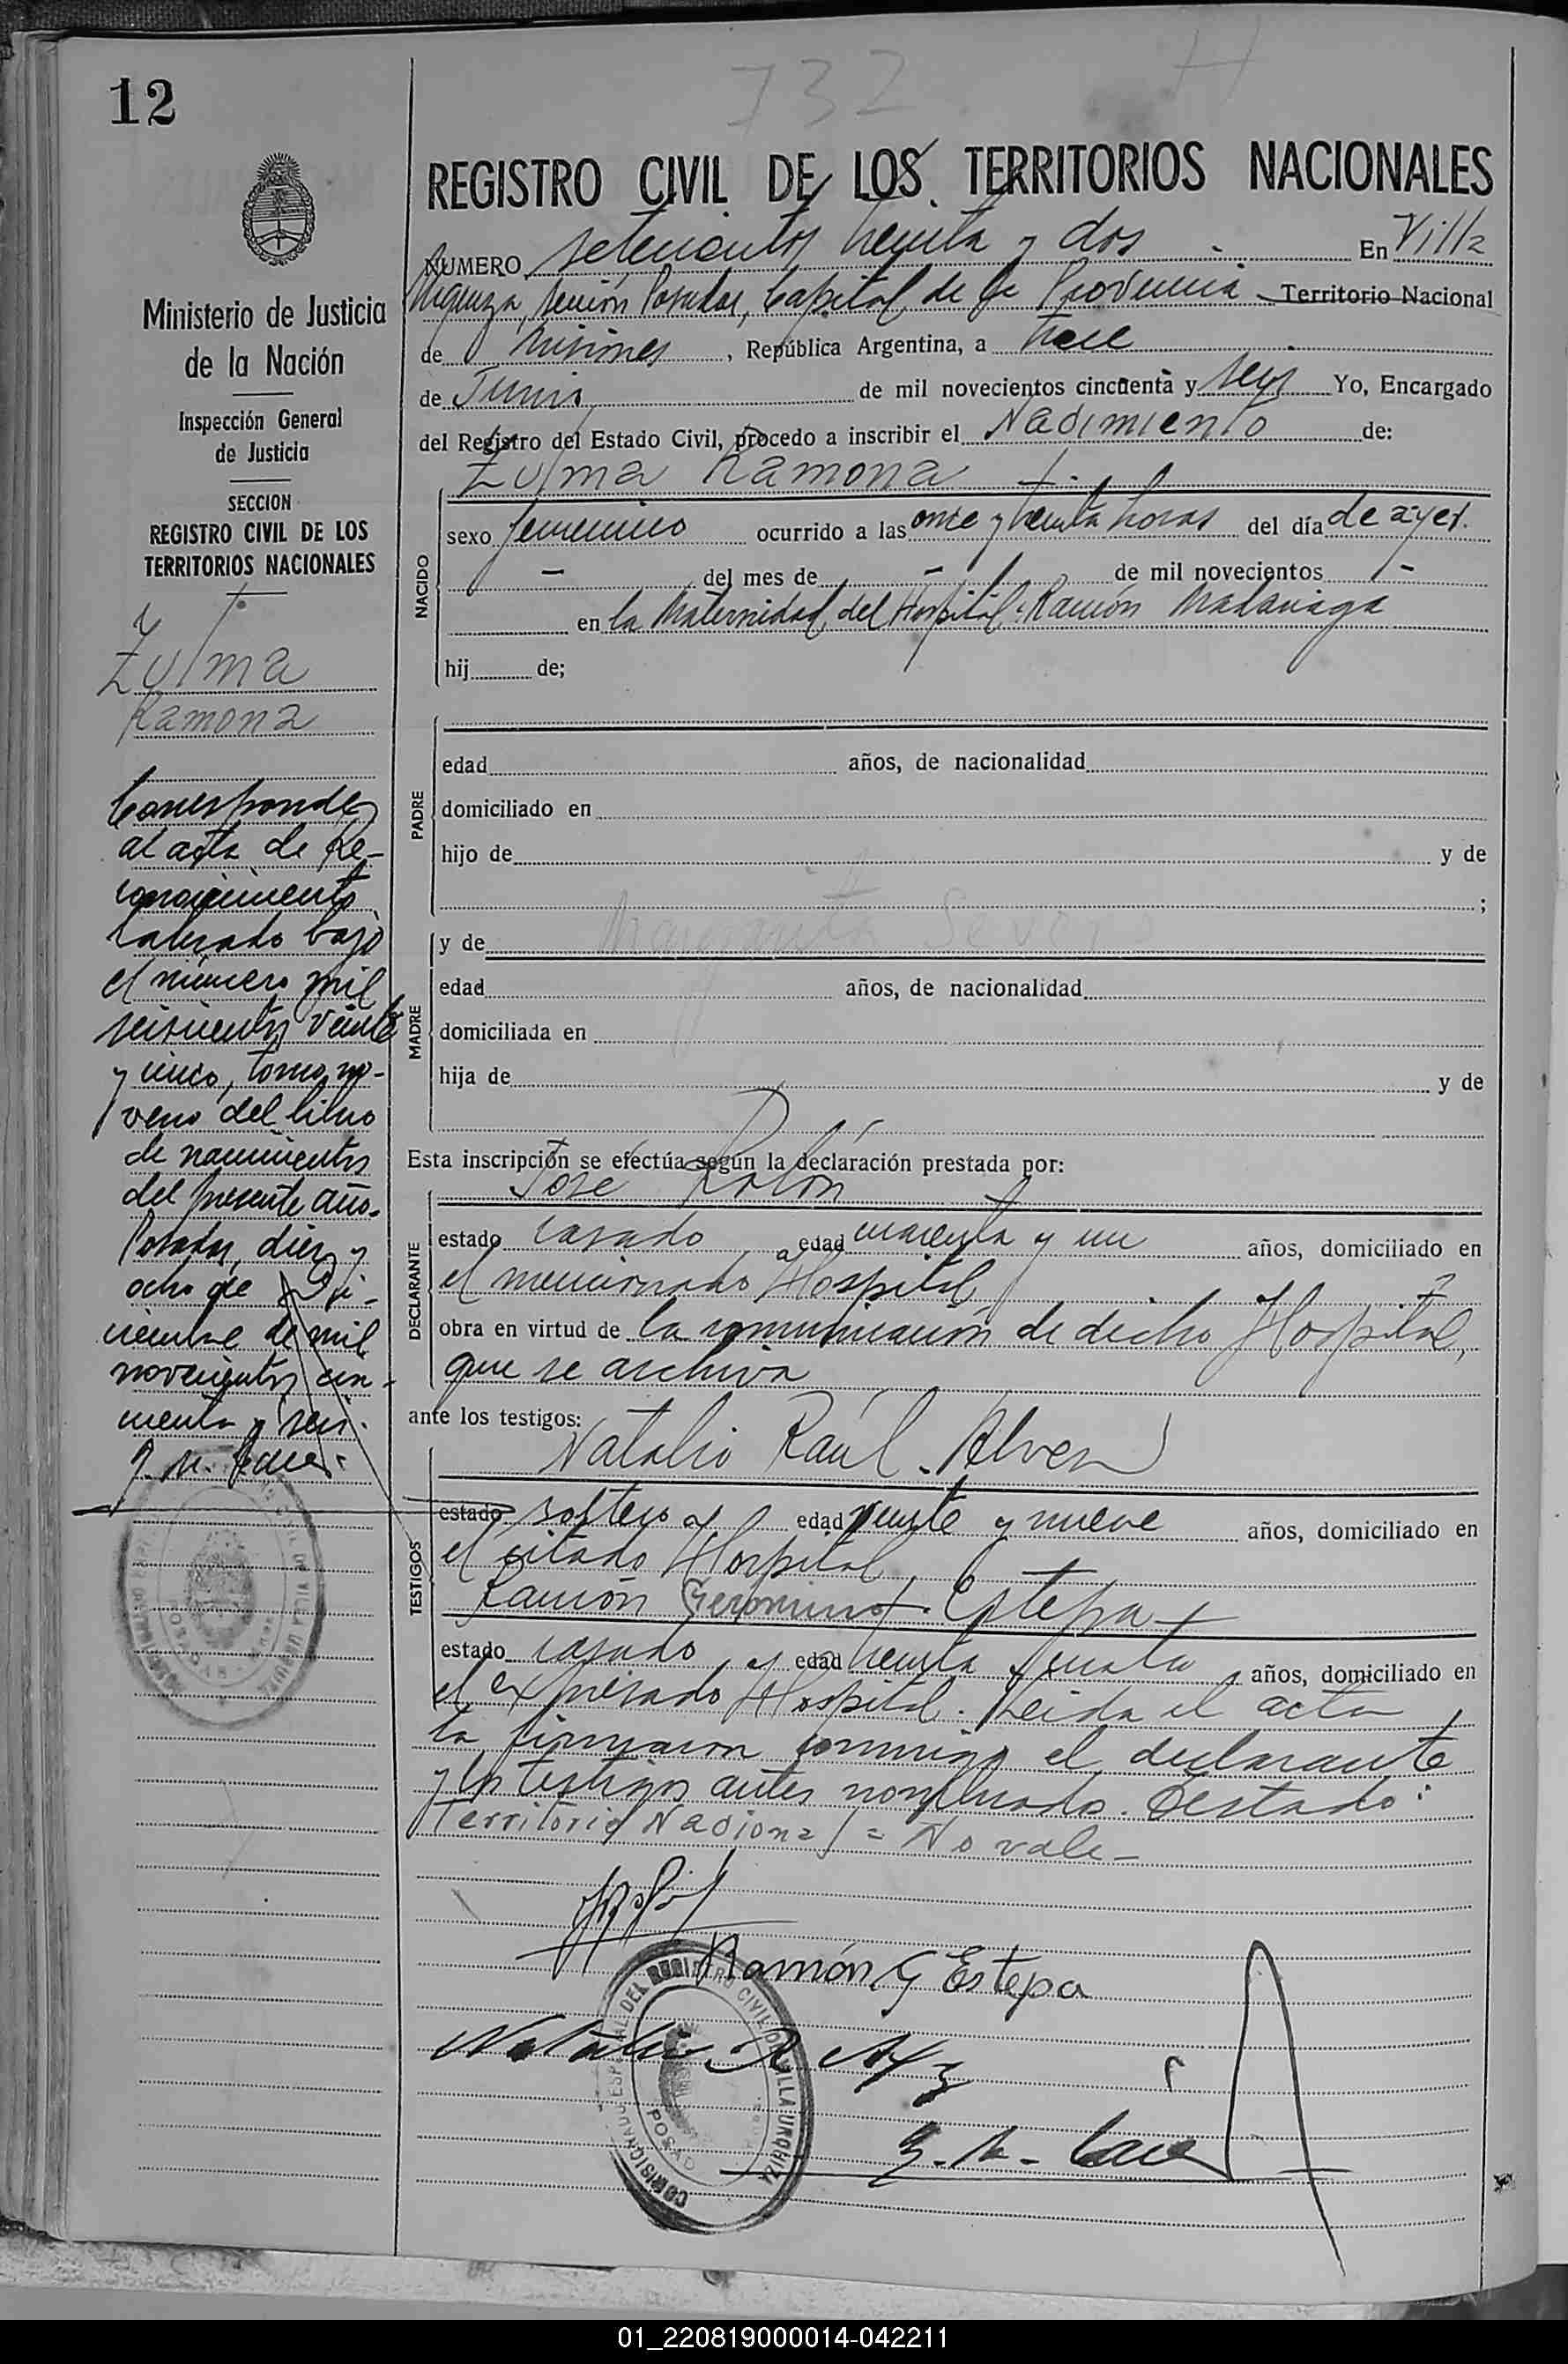 732
12
REGISTRO CIVIL DE LOS TERRITORIOS NACIONALES
NUMERO setecientos treinta y dos En Villa
Urquiza, sección Posadas, Capital de la Provincia Territorio Nacional
de Misiones, República Argentina, a trece
de Junio de mil novecientos cincuenta y seis Yo, Encargado
del Registro del Estado Civil, procedo a inscribir el Nacimiento de:
Zulma Ramona
NACIDO
sexo femenino ocurrido a las once y treinta horas del día de ayer.
- del mes de - de mil novecientos -
en la Maternidad del Hospital Ramón Madariaga
hij de;
PADRE
edad años, de nacionalidad
domiciliado en
hijo de y de
;
MADRE
y de Margarita
edad años, de nacionalidad
domiciliada en
hija de y de
Esta inscripción se efectúa según la declaración prestada por:
DECLARANTE
José Rolón
estado casado, edad cuarenta y un años, domiciliado en
el mencionado Hospital
obra en virtud de la comunicación de dicho Hospital,
que se archiva
ante los testigos:
TESTIGOS
Natalio Raúl
estado soltero edad veinte y nueve años, domiciliado en
el citado Hospital
Ramón Gerónimo Estepa
estado casado, edad treinta y cuatro, años, domiciliado en
el expresado Hospital. Leida el acta
la firmaron conmigo el declarante
y los testigos antes nombrado. Testado:
Territorio Nacional = No vale -
Ramón G Estepa
Natalio R
COMISIONADO ESPECIAL DEL REGISTRO CIVIL DE VILLA URQUIZA
POSADAS
Ministerio de Justicia
de la Nación
Inspección General
de Justicia
SECCION
REGISTRO CIVIL DE LOS
TERRITORIOS NACIONALES
Zulma
Ramona
Corresponde
al acta de Re-
conocimiento
labrado bajo
el número mil
seiscientos veinte
y cinco, tomo no-
veno del libro
de nacimientos
del presente año.
Posadas, diez y
ocho de Di-
ciembre de mil
novecientos cin-
cuenta y seis.
01_220819000014-042211